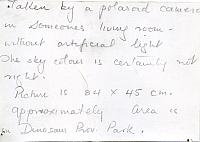 Taken by a polaroid camera
in someones living room -
without artificial light
The sky colour is certainly not
right.
Picture is 84 x 45 cm.
approximately Area is
in Dinosaur Prov. Park.